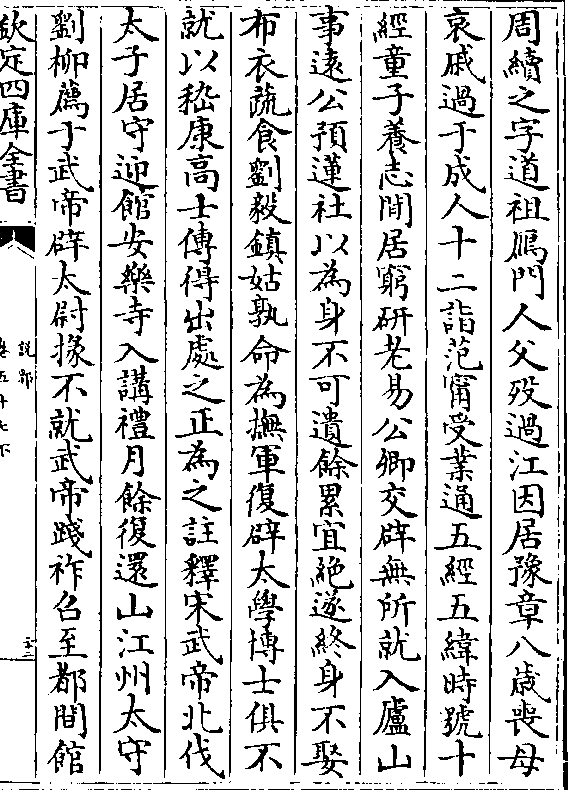 周續之字道祖鴈門人父殁過江因居豫章八歲喪母
哀戚過于成人十二詣范甯受業通五經五緯時號十
經童子養志閒居窮研老易公卿交辟無所就入廬山
事遠公預蓮社以為身不可遺餘累宜絶遂終身不娶
布衣蔬食劉毅鎮姑孰命為撫軍復辟太學博士俱不
就以嵇康高士傳得出處之正為之註釋宋武帝北伐
太子居守迎館安樂寺入講禮月餘復還山江州太守
劉柳薦于武帝辟太尉掾不就武帝踐祚召至都間館
欽定四庫全書
説郛
卷五十七下